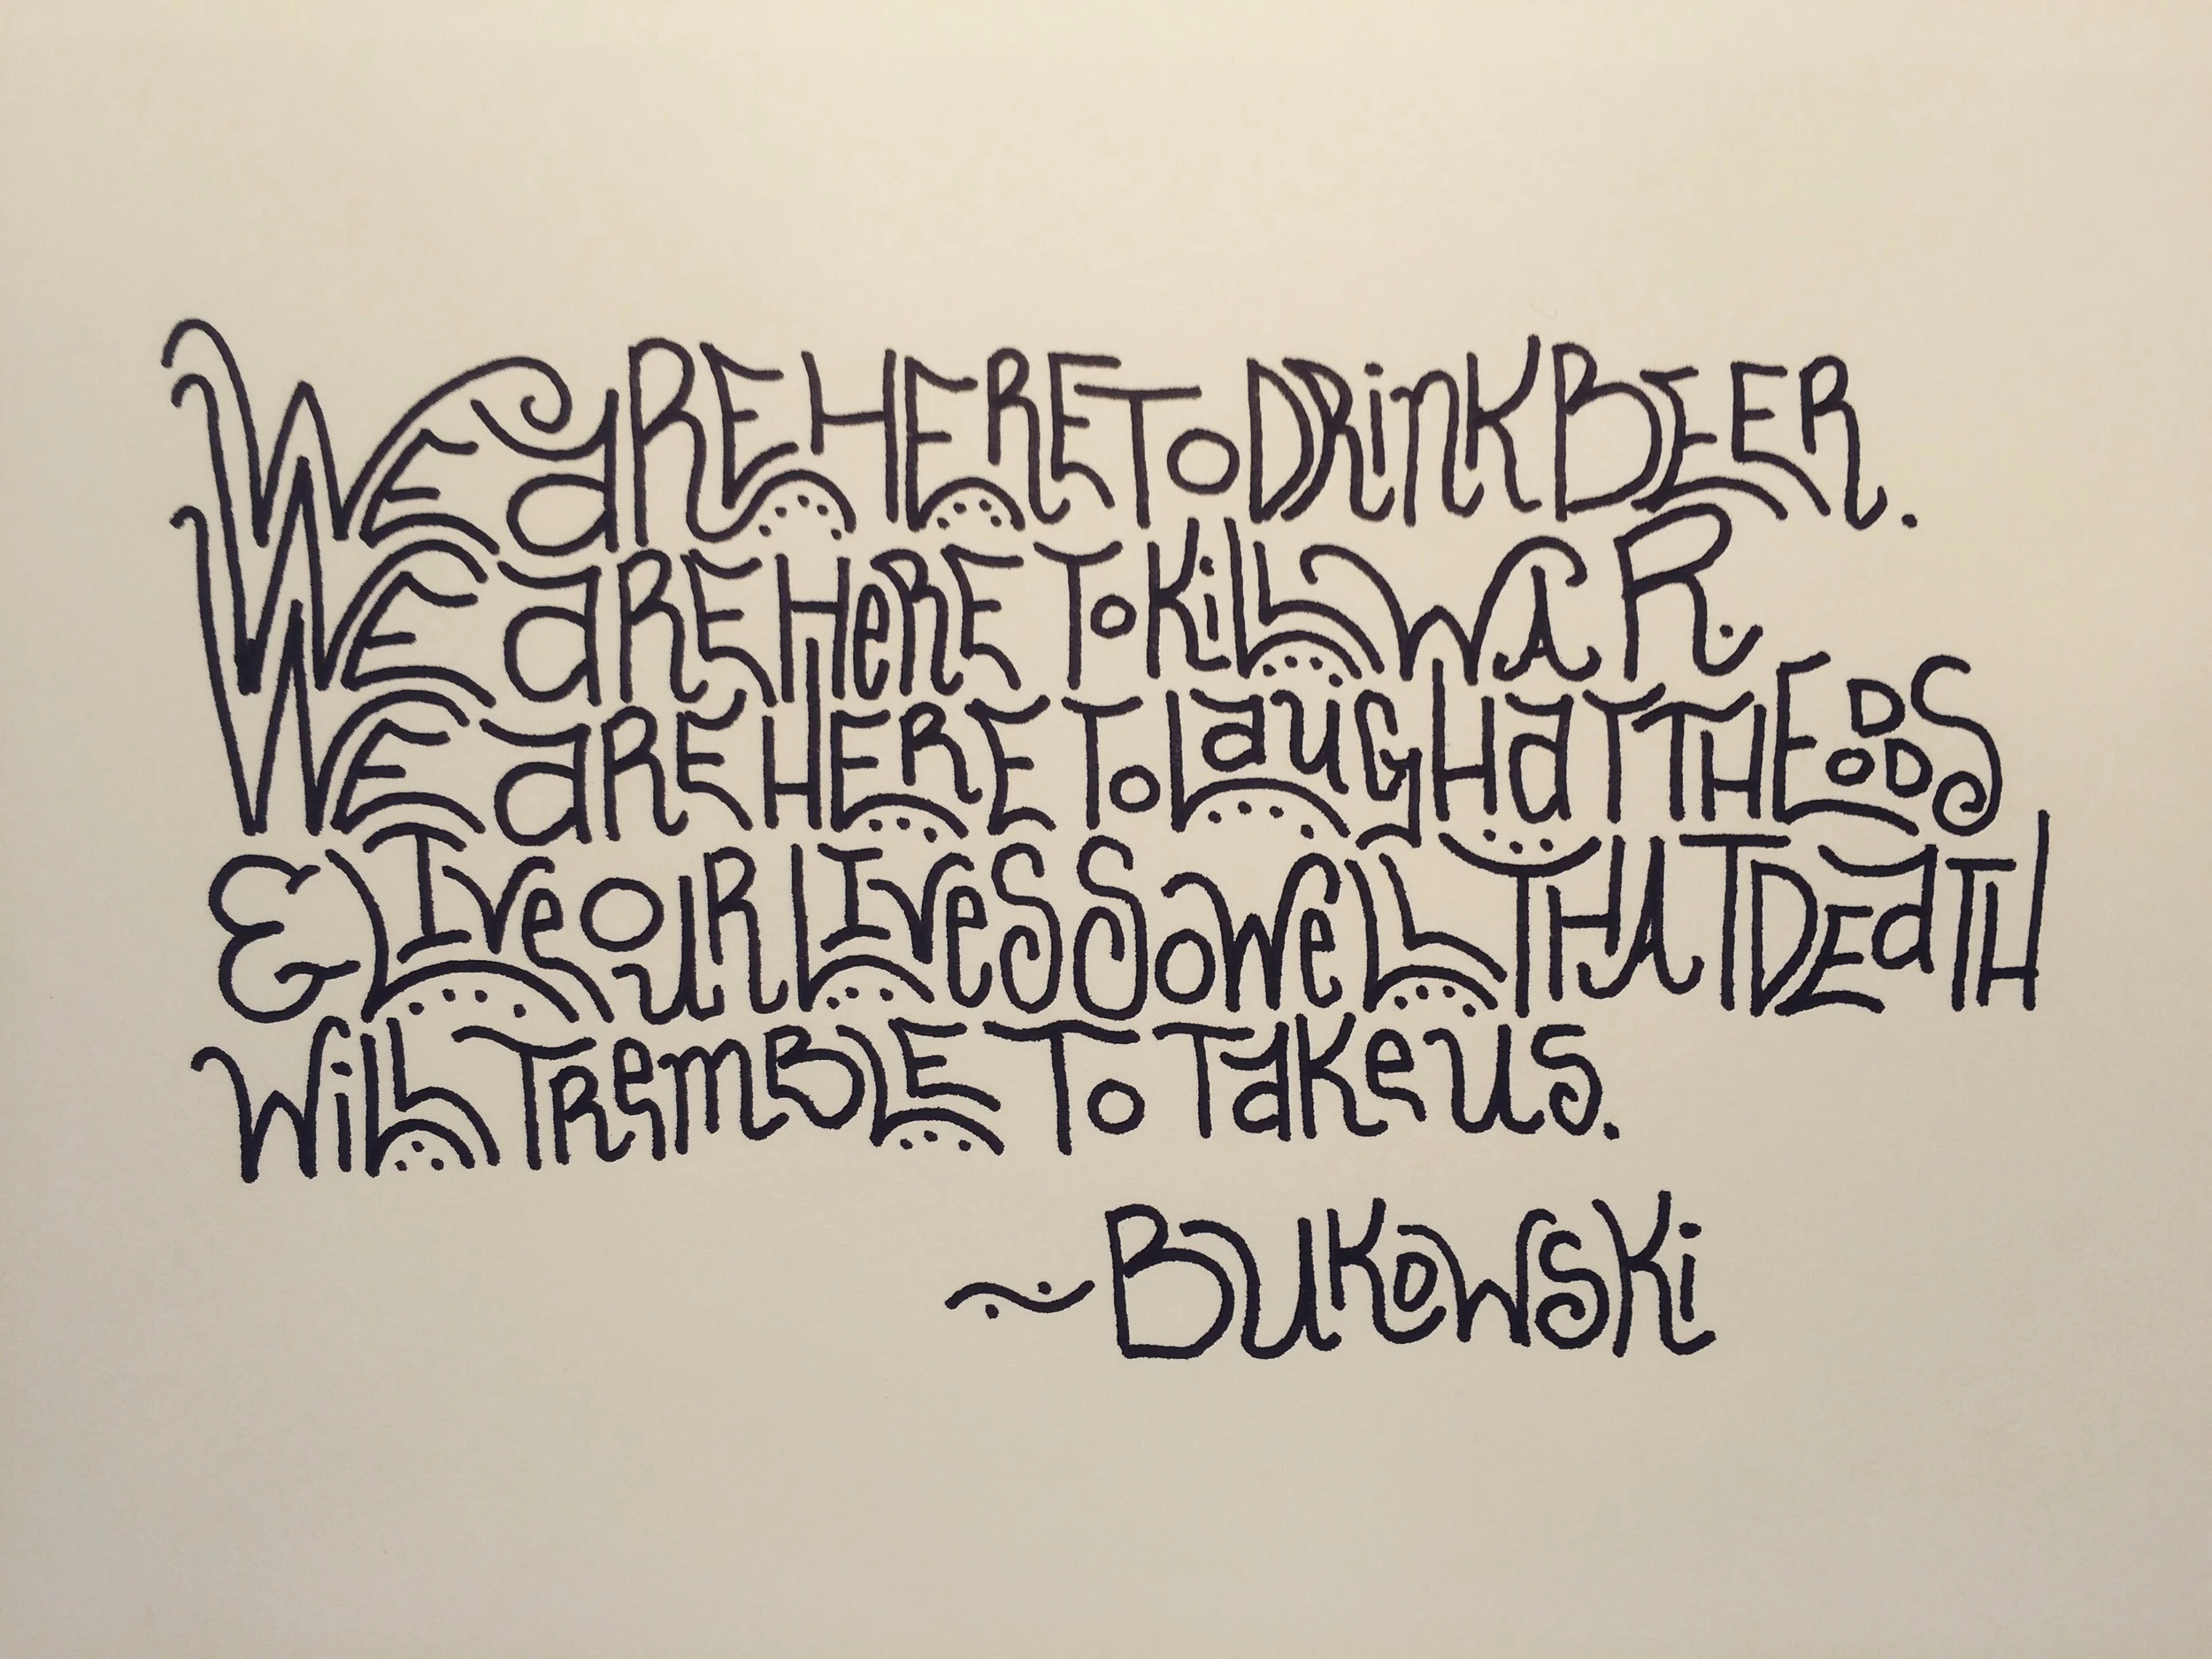 We aRE HERE To DRinK BEER.
WE aRE HeRE To KiLL WAR.
WE aRE HERE To LauGH aT THE oDDS
& LIve ouR LIveS So WeLL THAT DEaTH
WiLL TRemBLE To TaKe uS.
~BuKoWSKi